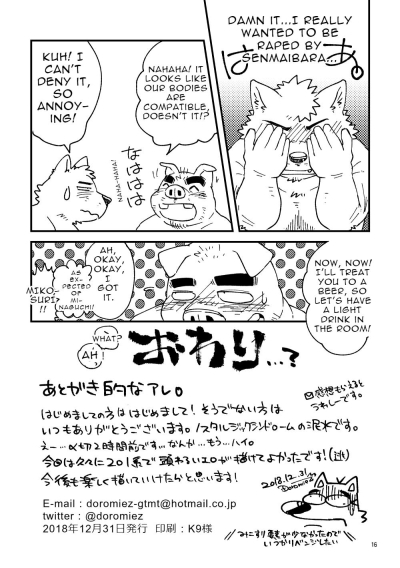 DAMN IT...I REALLY
WANTED TO BE
RAPED BY
SENMAIBARA...
はあ。
NAHAHA! IT
LOOKS LIKE
OUR BODIES
ARE
COMPATIBLE,
DOESN'T IT!?
KUH! I
CAN'T
DENY IT,
SO
ANNOY-
ING!
なはははは
NAHA-HAHA!
NOW, NOW!
I'LL TREAT
YOU TO A
BEER, SO
LET'S HAVE
A LIGHT
DRINK IN
THE ROOM!
AH,
OKAY,
OKAY, I
GOT IT.
AS
EX-
PECTED
OF MI-
NAGUCHI!
MIKO-
SURI
!!
WHAT?
AH!
おわり...?
あとがき的なアレ。
はじめましての方ははじめまして!そうでない方は
いつもありがとうございます。ノスタルジックシンドロームの泥水です。
えー…〆切2時間前です…なんか…もう…ハイ。
今後も楽しく描いていけたらと思います!
感想もらえると
うれしーです。
2018.12.31
@doromiez
E-mail : doromiez-gtmt@hotmail.co.jp
twitter : @doromiez
2018年12月31日発行 印刷:K9様
いつかリベンジしたい
16